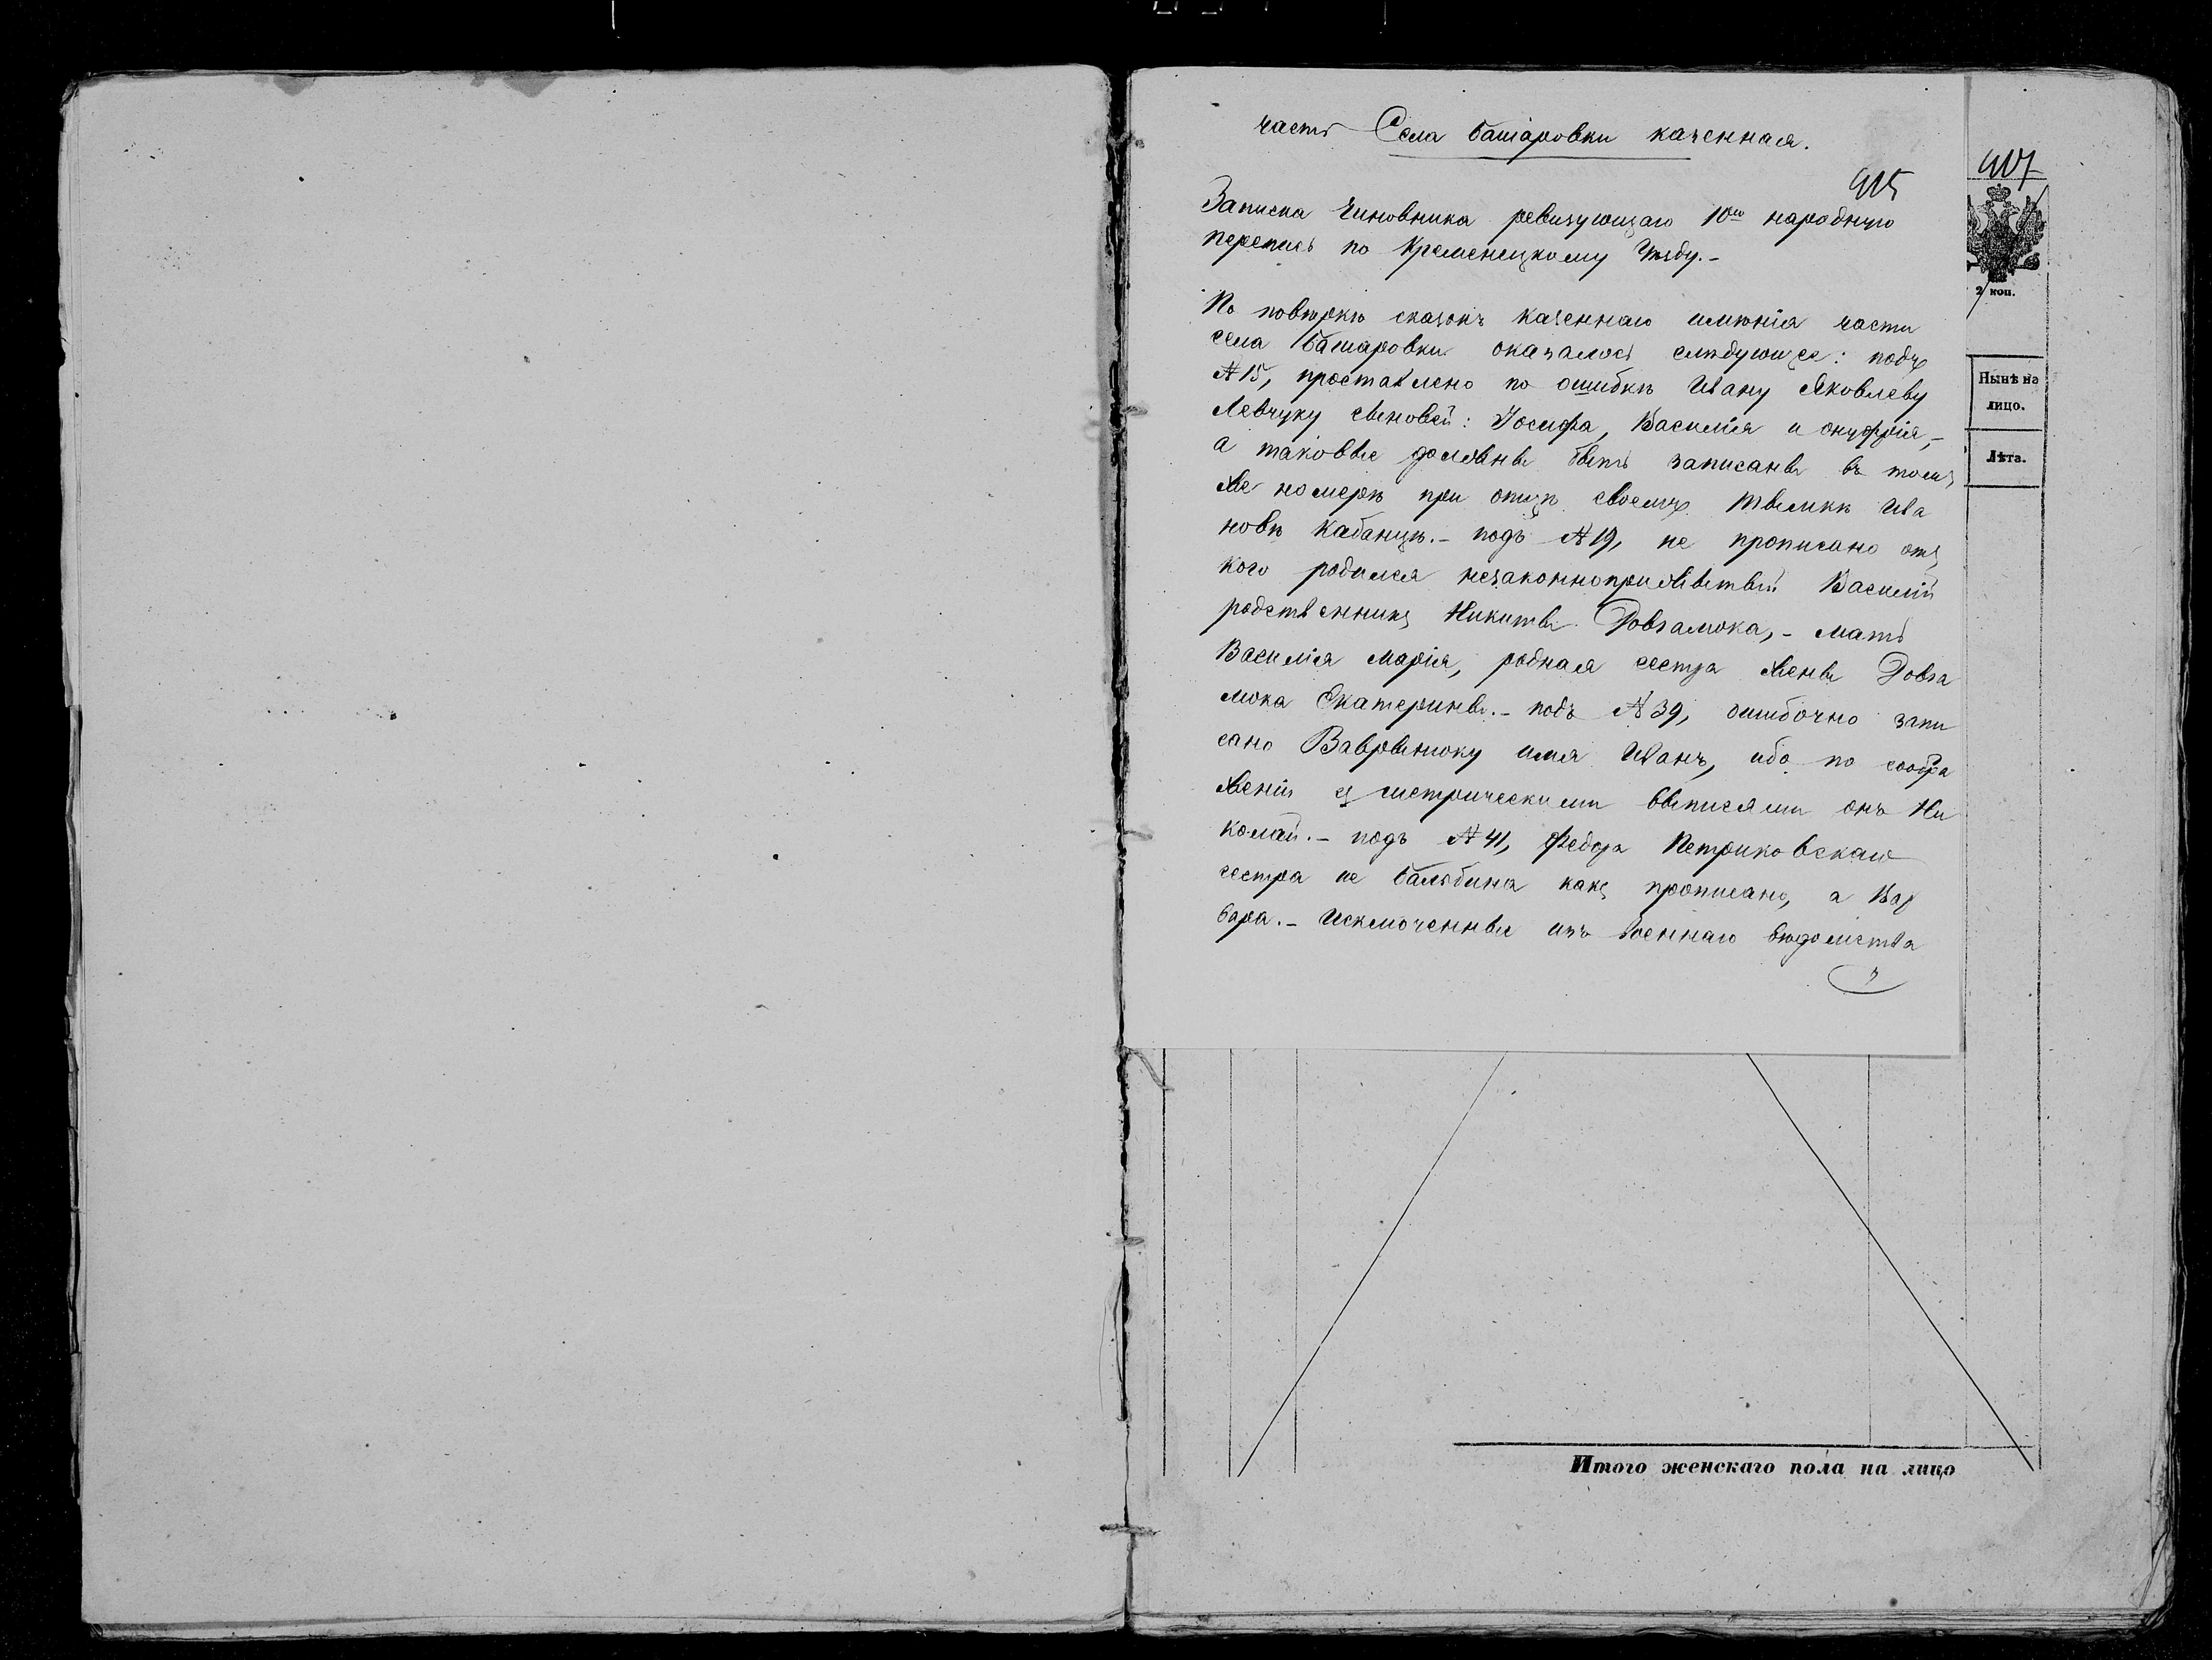 часть Села башаровки казенная.
407
415
Записка Чиновника ревизующаго 10ю народную
перепись по Кременецкому Уѣзду.-
2 коп.
По повѣркѣ сказокъ казеннаго имѣнія части
села башаровки оказалось слѣдующее: подъ
№ 15, проставлено по ошибкѣ Ивану Яковлеву
Левчуку сыновей: Іосифа, Василія и онуфрія,-
а таковые должны быть записаны въ томъ
же номерѣ при отцѣ своемъ Ива
новѣ Кабанцѣ.- подъ № 19, не прописано отъ
кого родился незаконноприжитый Василій
родственникъ Никиты Довгалюка,- мать
Василія Марія, родная сестра жены Довга
люка Екатерины.- подъ № 39, ошибочно запи
сано Вавринюку имя Иванъ, ибо по сообра
женіи съ метрическими выписями онъ Ни
колай.- подъ № 41, Федора Петриковскаго
сестра не бальбина какъ прописано, а Вар
вара.- Исключенные изъ военнаго вѣдомства
Нынѣ на
лицо.
Лѣта.
Итого женскаго пола на лицо